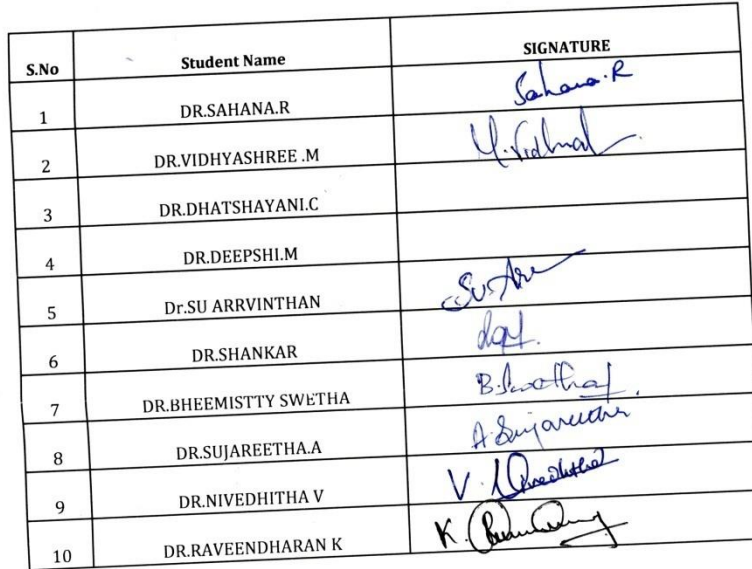 S.No Student Name SIGNATURE
1 DR.SAHANA.R Sahana.R
2 DR.VIDHYASHREE .M
3 DR.DHATSHAYANI.C
4 DR.DEEPSHI.M
5 Dr.SU ARRVINTHAN
6 DR.SHANKAR
7 DR.BHEEMISTTY SWETHA B.Swetha
8 DR.SUJAREETHA.A A.Sujareetha
9 DR.NIVEDHITHA V V.Nivedhitha
10 DR.RAVEENDHARAN K K.